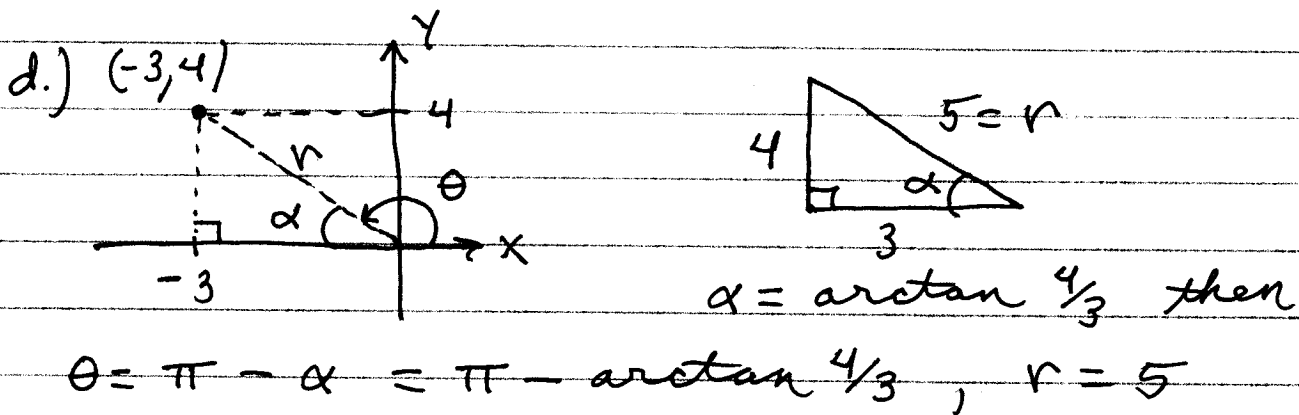 d.) (-3,4)
Y
4
r
θ
α
X
-3
4
5 = r
α
3
α = arctan 4/3 then
θ = π - α = π - arctan 4/3, r = 5